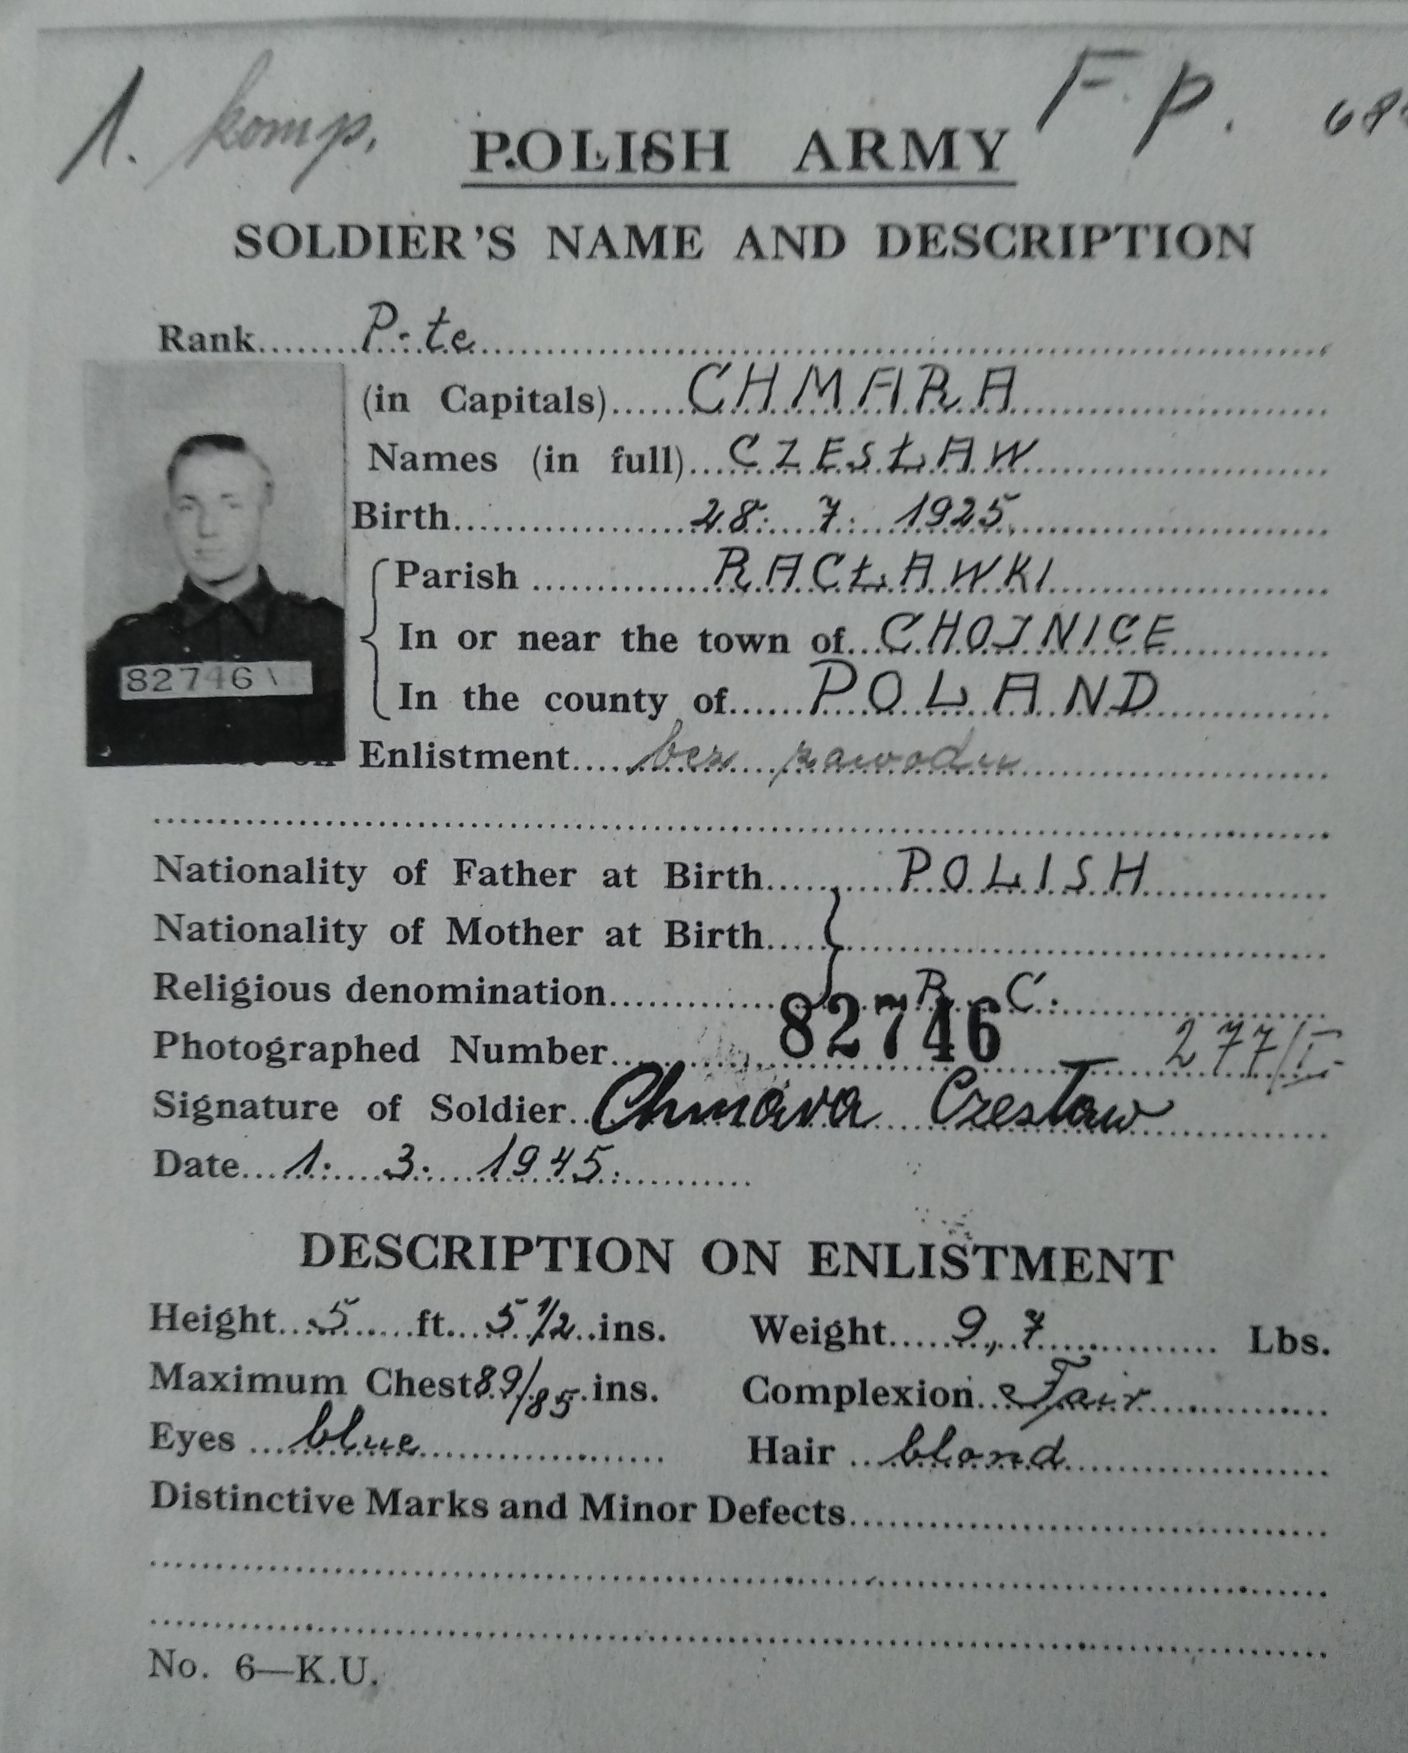 1. komp.
F. p.
POLISH ARMY
SOLDIER'S NAME AND DESCRIPTION
Rank P-te
(in Capitals) CHMARA
Names (in full) CZESŁAW
Birth 28. 7. 1925.
Parish RACŁAWKI
In or near the town of CHOJNICE
In the county of POLAND
on Enlistment bez zawodu
82746
Nationality of Father at Birth POLISH
Nationality of Mother at Birth
Religious denomination R. C.
Photographed Number 82746 – 277/I.
Signature of Soldier Chmara Czesław
Date 1. 3. 1945.
DESCRIPTION ON ENLISTMENT
Height 5 ft. 5 1/2 ins. Weight 9,7 Lbs.
Maximum Chest 89/85 ins. Complexion Fair
Eyes blue Hair blond
Distinctive Marks and Minor Defects
No. 6—K.U.